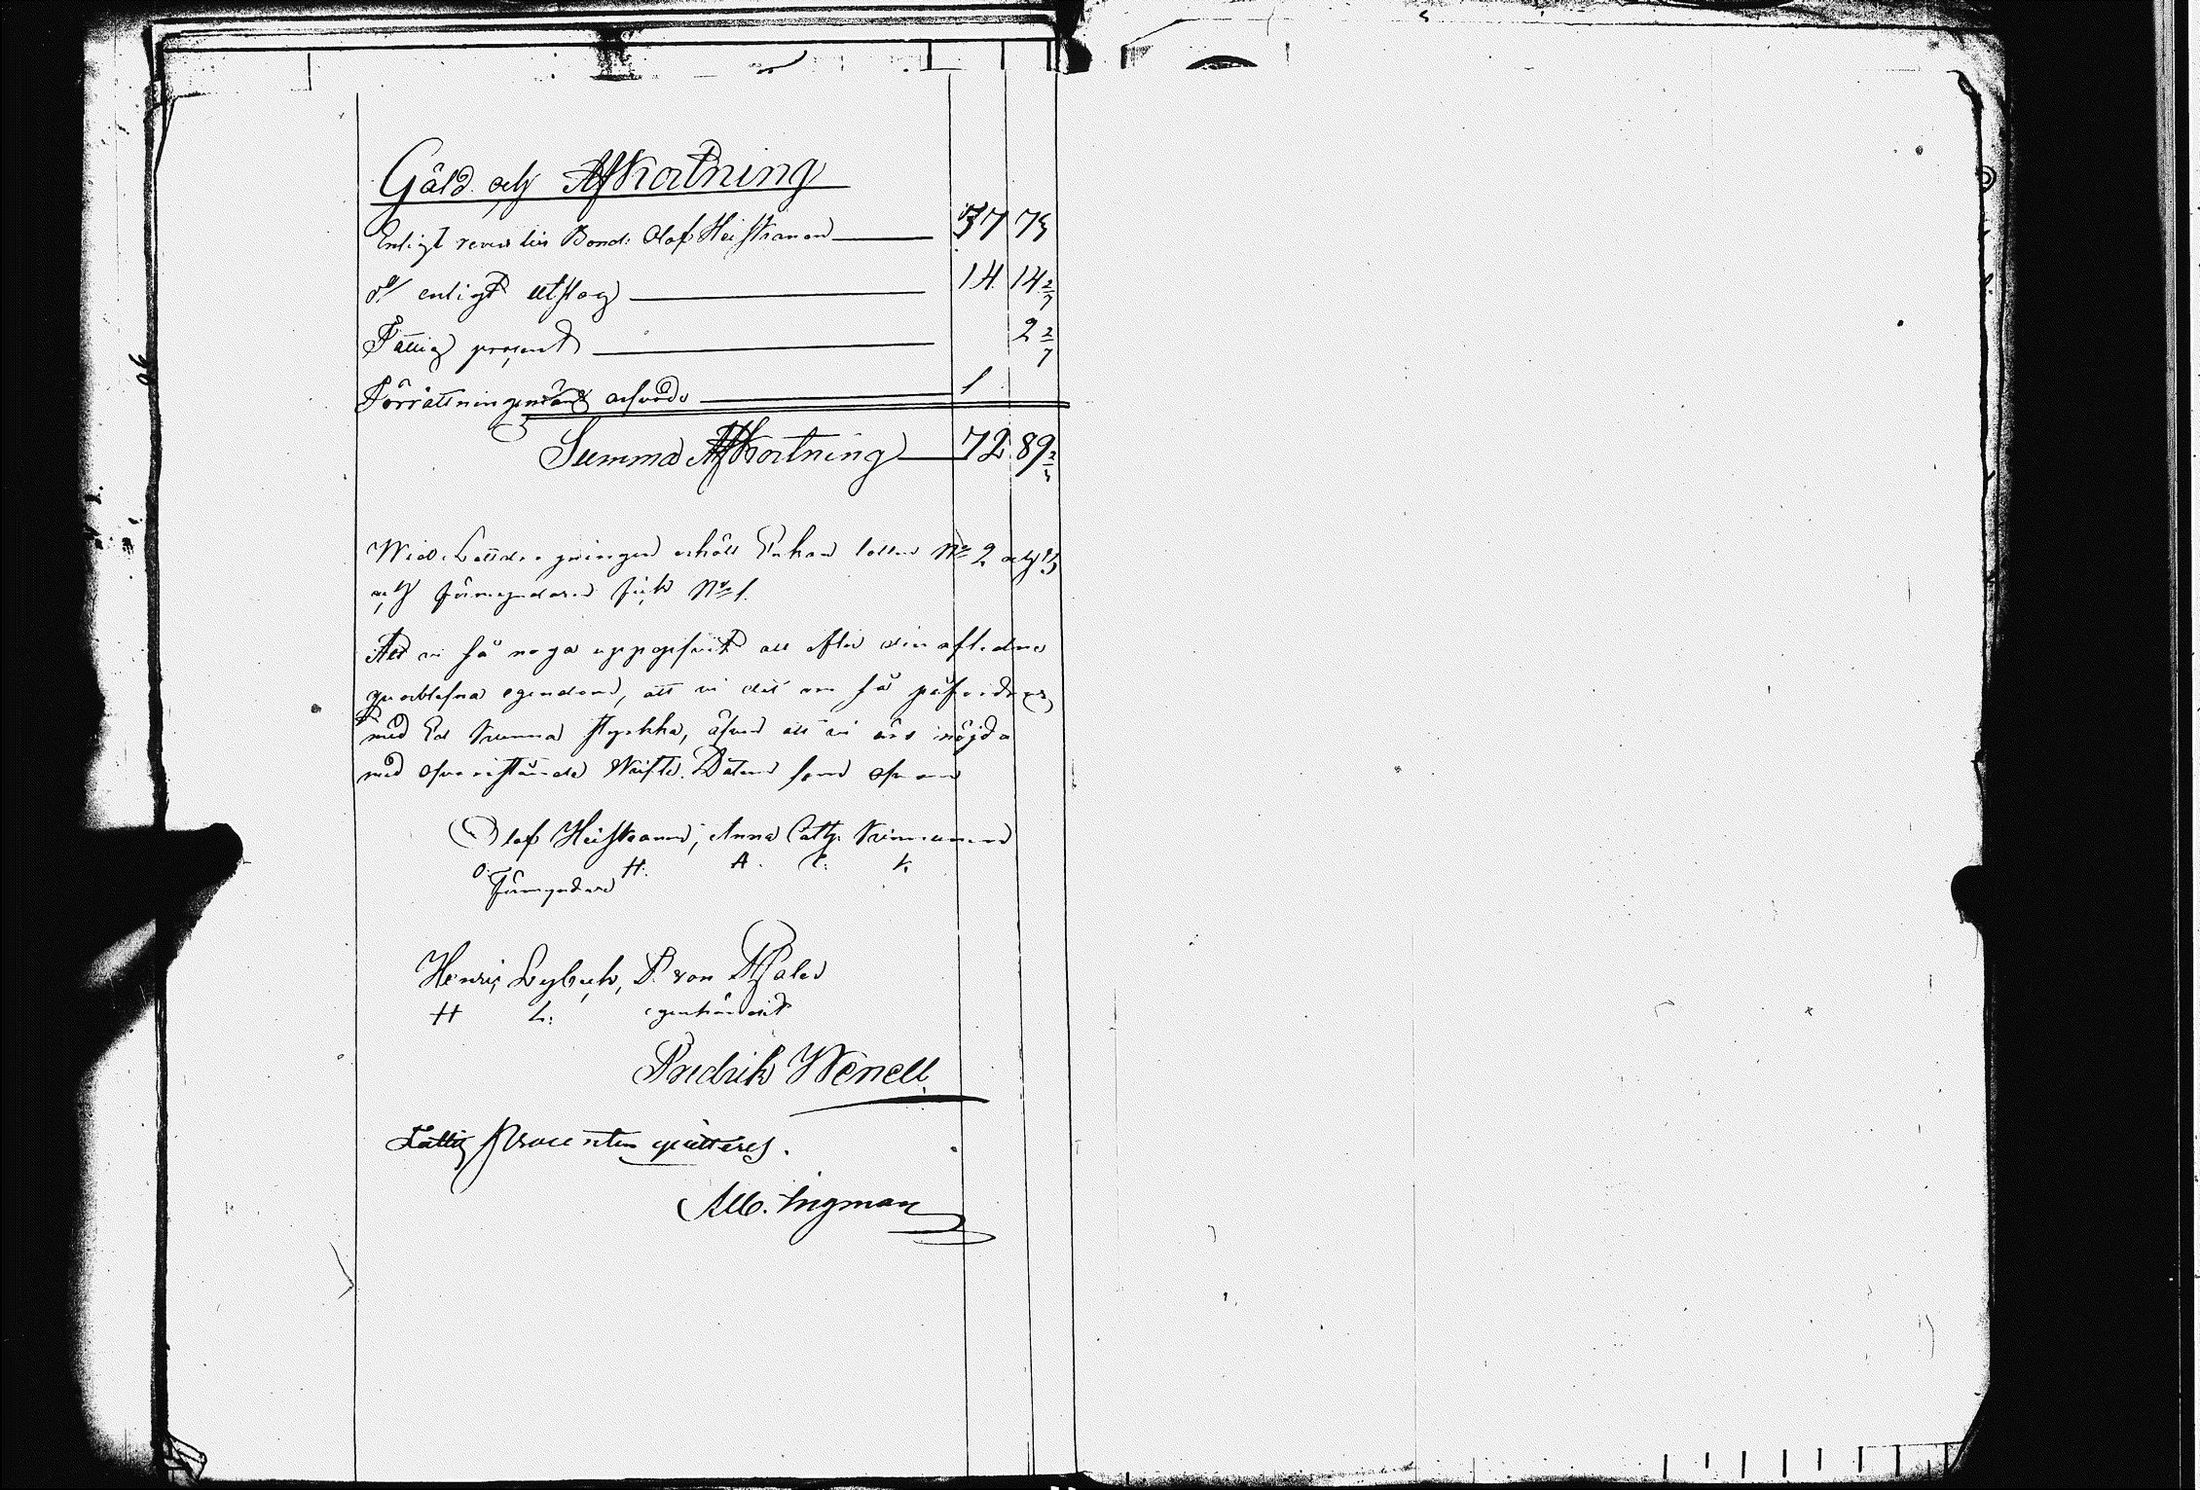 Gäld och Afkortning
Enligt revers till Bond: Olof Heiskanen 57 73
d:o enligt utslag 14. 14 2/7
Fattig procent 2 2/7
Förrättningsmäns arfvode 1
Summa Afkortning 72 89 2/7
Wid Lottdragningen erhöll Enkan lotten N:o 2 och 3
och förmyndaren fick N:o 1.
Att vi så noga uppgifvit all efter den aflidne
qvarblefna egendom, att vi det om så påfordras
med Ed kunna styrkka, äfven att vi äro nöjda
med ofvanstående Skifte. Datum som ofvan
Olof Heiskanen, Anna Cath. Kinnunen
O: H: A. C: K
förmyndare
Henric Lyback, P. von
H L: egenhändigt
Fredrik Wenell
Fattig Procenten qvitteras.
Alb. Ingman